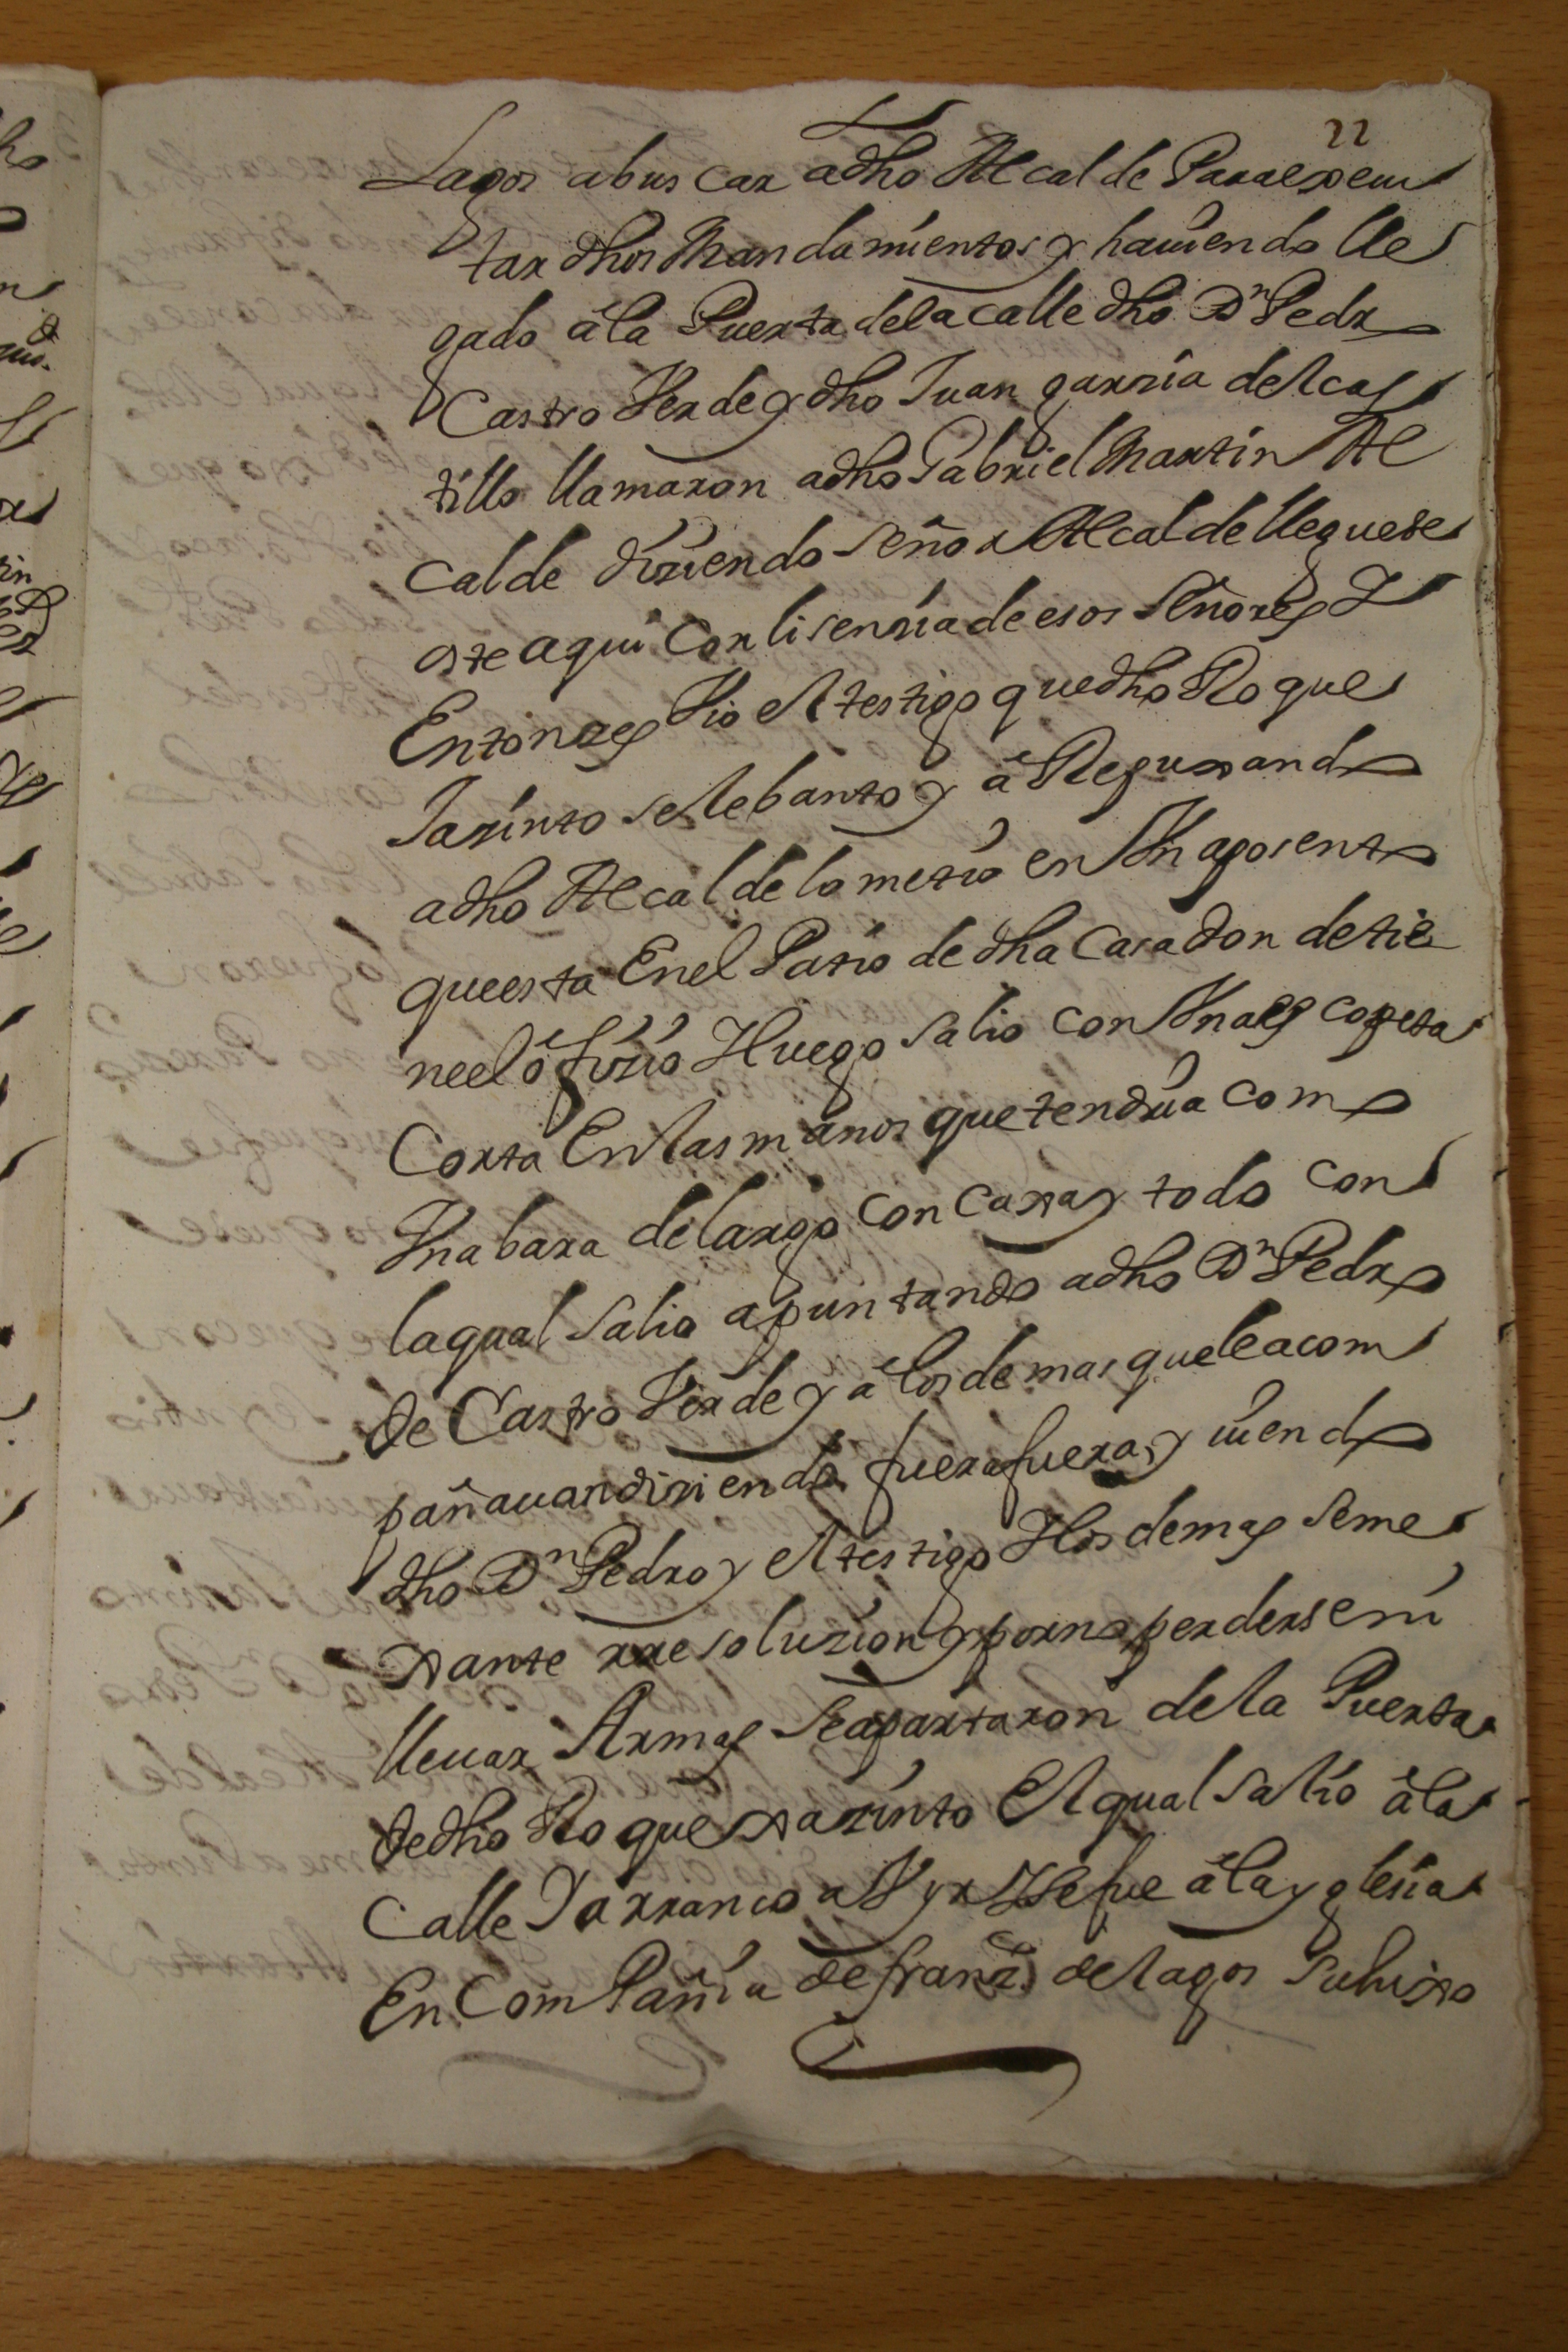 22
Lagos a bus car a dho Alcalde Para exscu
tar dhos Mandamientos y hauiendo lle
gado â la Puerta de la calle dho Dn Pedro
Castro Verde y dho Juan garzia del cas
tillo llamaron a dho Gabriel Martin Al
calde diziendo señor Alcalde llegue se
oste aqui con lisenzia de esos señores Y
Entonzes Vio el testigo que dho Roque
Jazinto se lebanto y â Repuxando
a dho Alcalde lo metio en Vn aposento
que esta En el Patio de dha Casa donde tie
ne el ofizio Y luego salio con Vna escopeta
Corta En las manos que tendria como
Vna bara de largo con caxa y todo con
la qual salio apuntando a dho Dn Pedro
de Castro Verde y a los demas que le acom
pañauan diziendo fuera fuera, y uiendo
dho Dn Pedro y el testigo Y los demas seme
xante rresoluzion y por no perderse ni
lleuar Armas se apartaron de la Puerta
de dho Roque xazinto El qual salio â la
Calle Y arranco a Vyr Y se fue â la yglesia
En Compañia de franco de lagos Su hixo